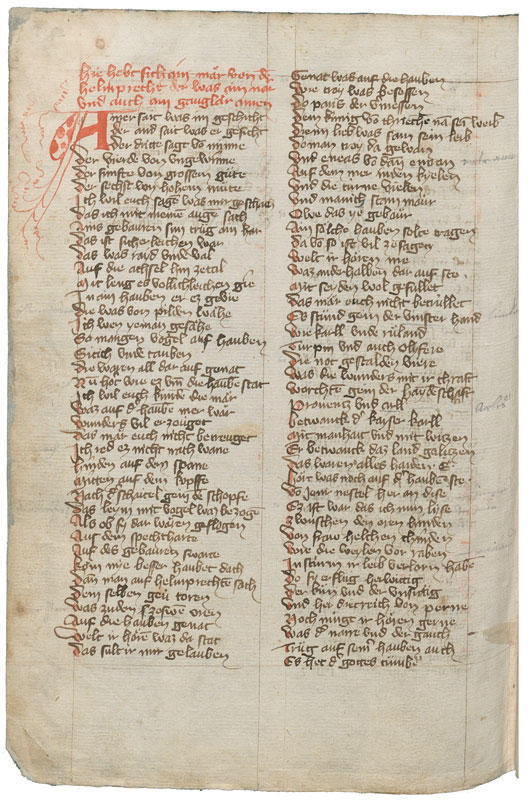 Hie hebt sich ain mär von de
helmprecht der was ain nar
vnd auch ain gauglär amen
Ainer sait was im geschicht
der and sait was er gesicht
Der dritte sagt vo minne
Der vierde von vngewinne
Der funfte von grossem gute
Der sechst von hohem mute
Ich wil euch sagn was mir geschach
Das ich mit meinen augen sach
Ains gebauren sun trug ain har
Das ist sicherleichen war
Das was raid vnd val
Auf die achsel hin zetal
Mit leng es volliklichen gie
In ain hauben er es gevie
Die was von pilden wähe
Ich wen yeman gesähe
So mangen vogel auf hauben
Sitich vnd tauben
Die waren all dar auf genat
Nu hört wie es vm die haube stat
Ich wil euch kunde die mär
Waz auf d haube mer wär
Wunders vil erzeuget
Das mär euch nicht betreuget
Ich red es nicht nach wane
Hinden auf dem spane
Mitten auf dem kopffe
Nach d schaitel gein de schopfe
Das leyn mit vogel was bezogē
Als ob sy dar wären geflogen
Aus dem spechtharte
Auf des gebauren swarte
Kom nie besser hauben dach
Dan man auf helmprechte sach
Dem selben geu toren
was zu dem zeswen oren
Auf die hauben genat
Welt ir hören waz da stat
Das sült ir mir gelauben
Genat was auf die hauben
Wie troy was besessen
Do paris der vmessen
Dem künig vo chriechn na sein weib
Die im lieb was sam sein leib
Vo man troy da gewan
Vnd eneas vo dan entran
Auf dem mer in den kyelen
Vnd die türne vielen
Vnd manich stain maur
Owe das ye gebaur
Ain solche hauben solte tragen
Da vo so ist vil ze sagen
Welt ir hören me
Waz anderhalben dar auf ste
Mit seiden wol gefullet
Das mär euch nicht betrüllet
Es stünd gein der vinster hand
Wie karll vnd rüland
Turpin vnd auch Olifere
Die not gestalden viere
Was die wunders mit ir chraft
Worchten gein der haydeschaft
Prouentz vnd arll
Betwanck d kaiser karll
Mit manhait vnd mit witzen
Er betwanck daz land galitzen
Das waren alles haiden E
Hört was noch auf d hauben ste
Vo jener nestel her an dise
Es ist war das ich nun lyse
Zwuschen den oren hinden
Von fraw helchen chinden
Wie die weylen vor raben
In sturm ir leib verlorn habe
Do sy erslug her witig
Der kün vnd der vnsitig
Vnd her dietreich von perne
Noch mügt ir hören gerne
Was d narre vnd der gauch
Trüg auf seiner hauben auch
Es het d gottes tumbe